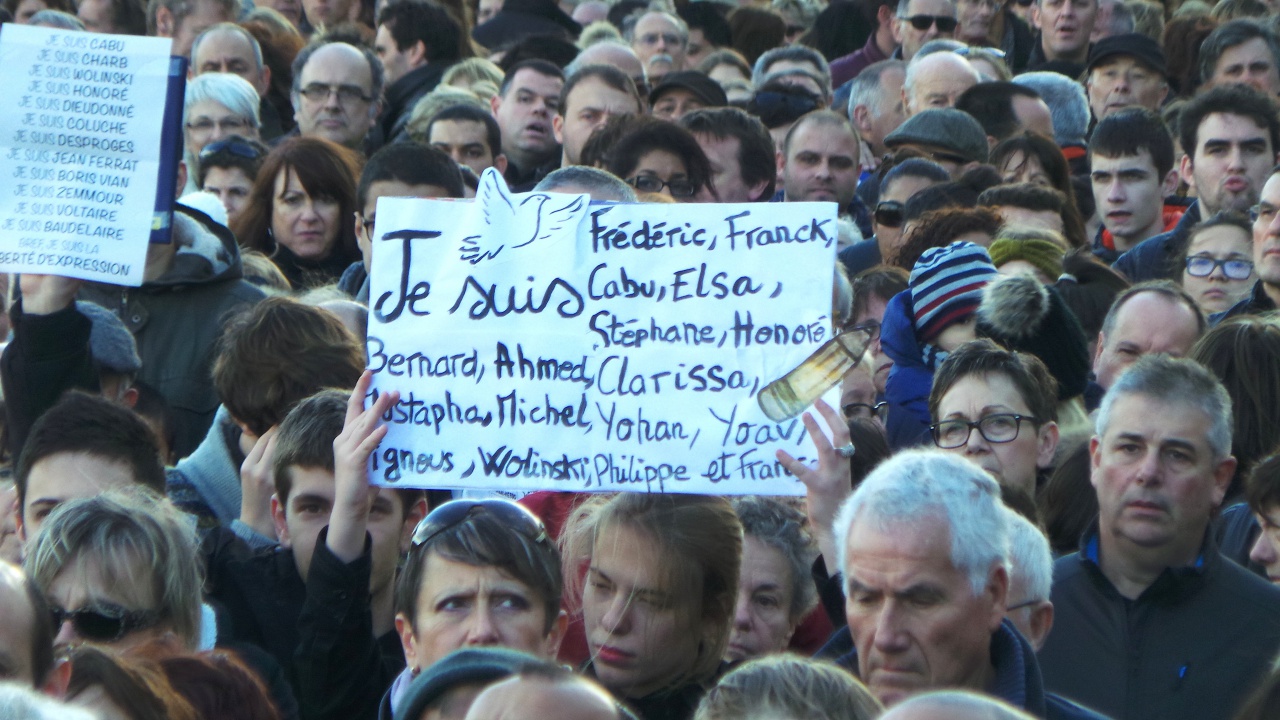 JE SUIS CABU
JE SUIS CHARB
JE SUIS WOLINSKI
JE SUIS HONORÉ
JE SUIS DIEUDONNÉ
JE SUIS COLUCHE
JE SUIS DESPROGES
JE SUIS JEAN FERRAT
JE SUIS BORIS VIAN
JE SUIS ZEMMOUR
JE SUIS VOLTAIRE
JE SUIS BAUDELAIRE
BREF JE SUIS LA
BERTÉ D'EXPRESSION
Je suis
Frédéric, Franck,
Cabu, Elsa,
Stéphane, Honoré
Bernard, Ahmed,
Clarissa,
ustapha, Michel,
Yohan, Yoav,
ignous, Wolinski,
Philippe et Franç